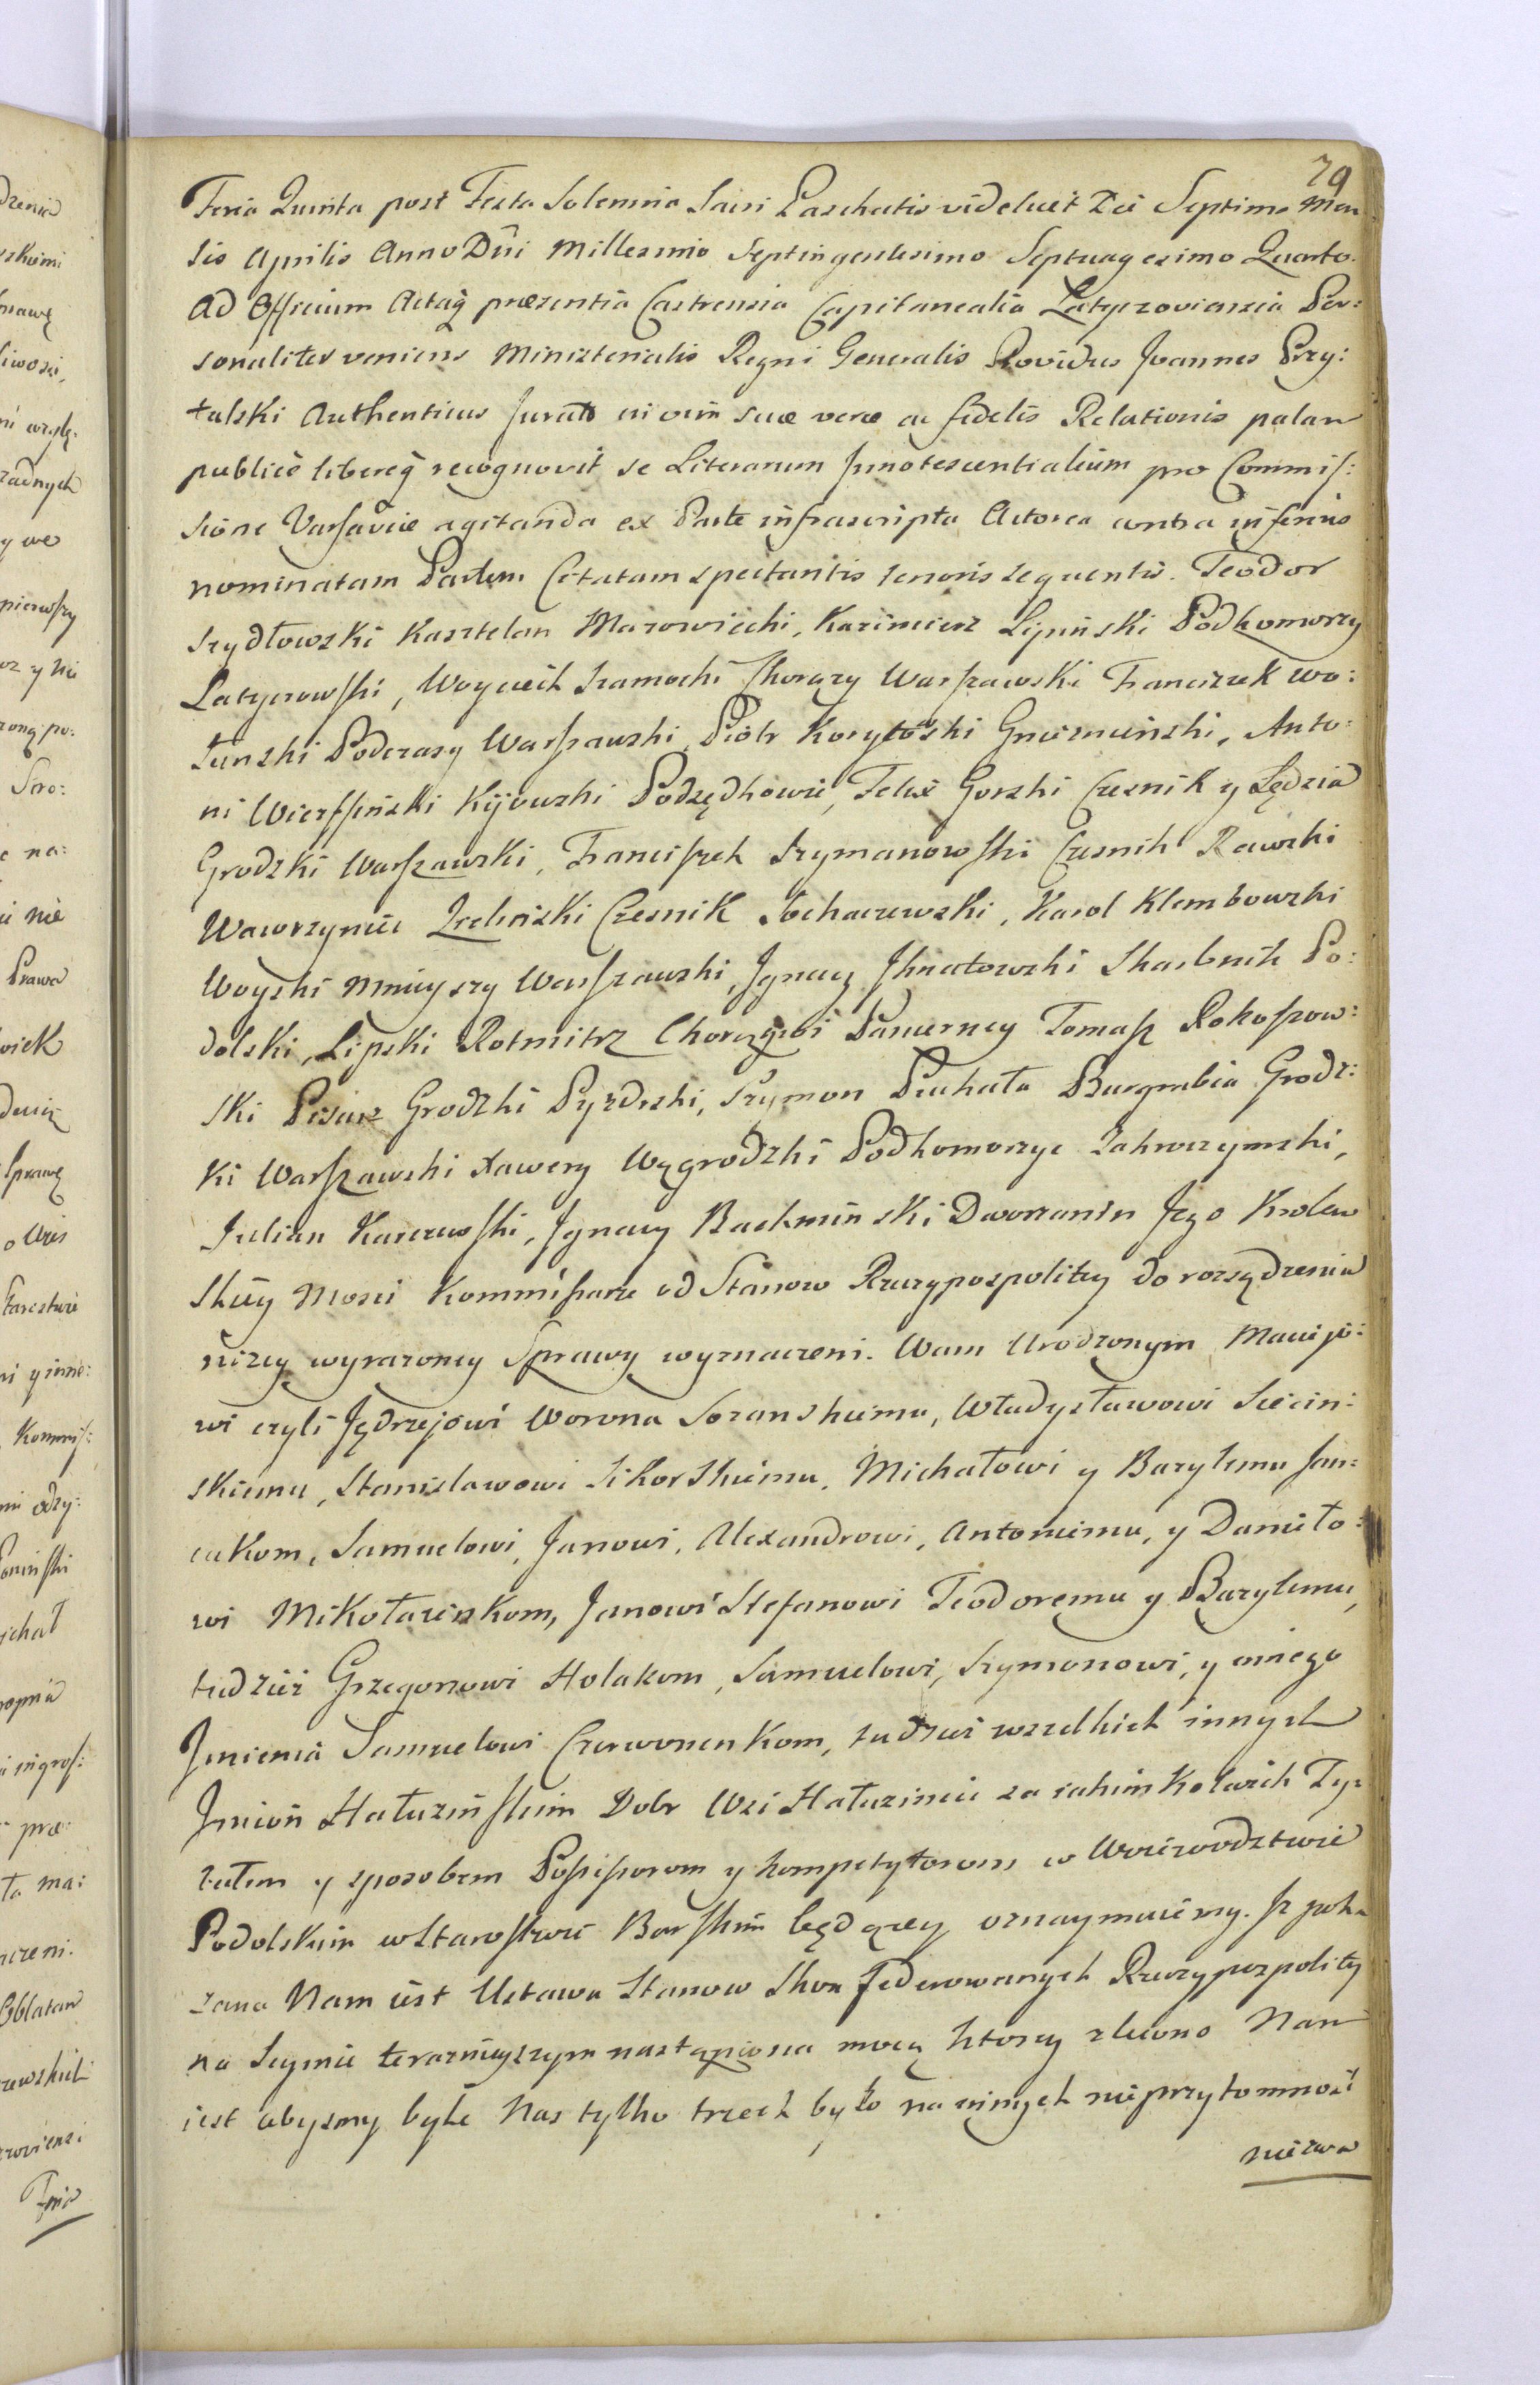 79
Feria Quinta post Festa Solemnia Sacri Paschatis videlicet Die Septima Men
sis Aprilis Anno Dni Millesimo Septingentesimo Septuagesimo Quarto.
Ad Officium Actaq̃ præsentia Castrensia Capitanealia Latyczoviensia Per:
sonaliter veniens Ministerialis Regni Generalis Providus Joannes Przy:
tulski Authenticus Juratus in vim suæ veræ ac fidelis Relationis palam
publicè libereq̃ recognovit se Literarum Innotescentialium pro Commis:
sione Varsaviæ agitanda ex Parte infrascripta Actorea contra inferius
nominatam Partem Citatam spectantis tenoris sequentis. Teodor
Szydłowski Kasztelan Mazowiecki, Kazimierz Lipiński Podkomorzy
Latyczowski, Woyciech Szamocki Chorąży Warszawski Franciszek Wo:
łunski Podczaszy Warszawski, Piotr Korytoski Gnieznieński, Anto:
ni Wierszinski Kijowski Podsędkowie, Felix Gorski Czesnik y Sędzia
Grodzki Warszawski, Franciszek Szymanowski Czesnik Rawski
Wawrzyniec Czesnik Sochaczewski, Karol Klembowski
Woyski Mnieyszy Warszawski, Jgnacy Jhnatowski Skarbnik Po:
dolski, Lipski Rotmitrz Chorągwi Pancerney Tomasz Rokoszow:
ski Pisarz Grodzki Pyzdrski, Szymon Piuhała Burgrabia Grodz:
ki Warszawski Xawery Wygrodzki Podkomorzyc Zakroczymski,
Julian Karczewski, Jgnacy Backmiński Dworzanin Jego Krolew
skiey Mosci Kommissarze od Stanow Rzeczypospolitey do rozsądzenia
niżey wyrażoney Sprawy wyznaczeni. Wam Urodzonym Macijo:
wi czyli Jędrzejowi Worona Sozanskiemu, Władysławowi Siecin:
skiemu, Stanisławowi Sikorskiemu, Michałowi y Barylemu Jan:
cukom, Samuelowi, Janowi, Alexandrowi, Antoniemu, y Daniło:
wi Mikołaienkom, Janowi Stefanowi Teodoremu y Barylemu,
tudzież Grzegorzowi Holakom, Samuelowi, Szymonowi, y innego
Jmienia Samuelowi Czerwonenkom, tudzież wszelkich innych
Jmion Hałuzińskim Dobr Wsi Hałuziniec za iakimkolwiek Ty:
tułem y sposobem Possessorom y kompetytorom w Woiewodztwie
Podolskim w Starostwie Barskim będącey oznaymuiemy. Jż poka
zana Nam iest Ustawa Stanow Skonfederowanych Rzeczypospolitey
na Seymie terażnieyszym nastąpiona mocą ktorey zlecono Nam
iest abysmy byle Nas tylko trzech było na innych nieprzytomność
nieżwa